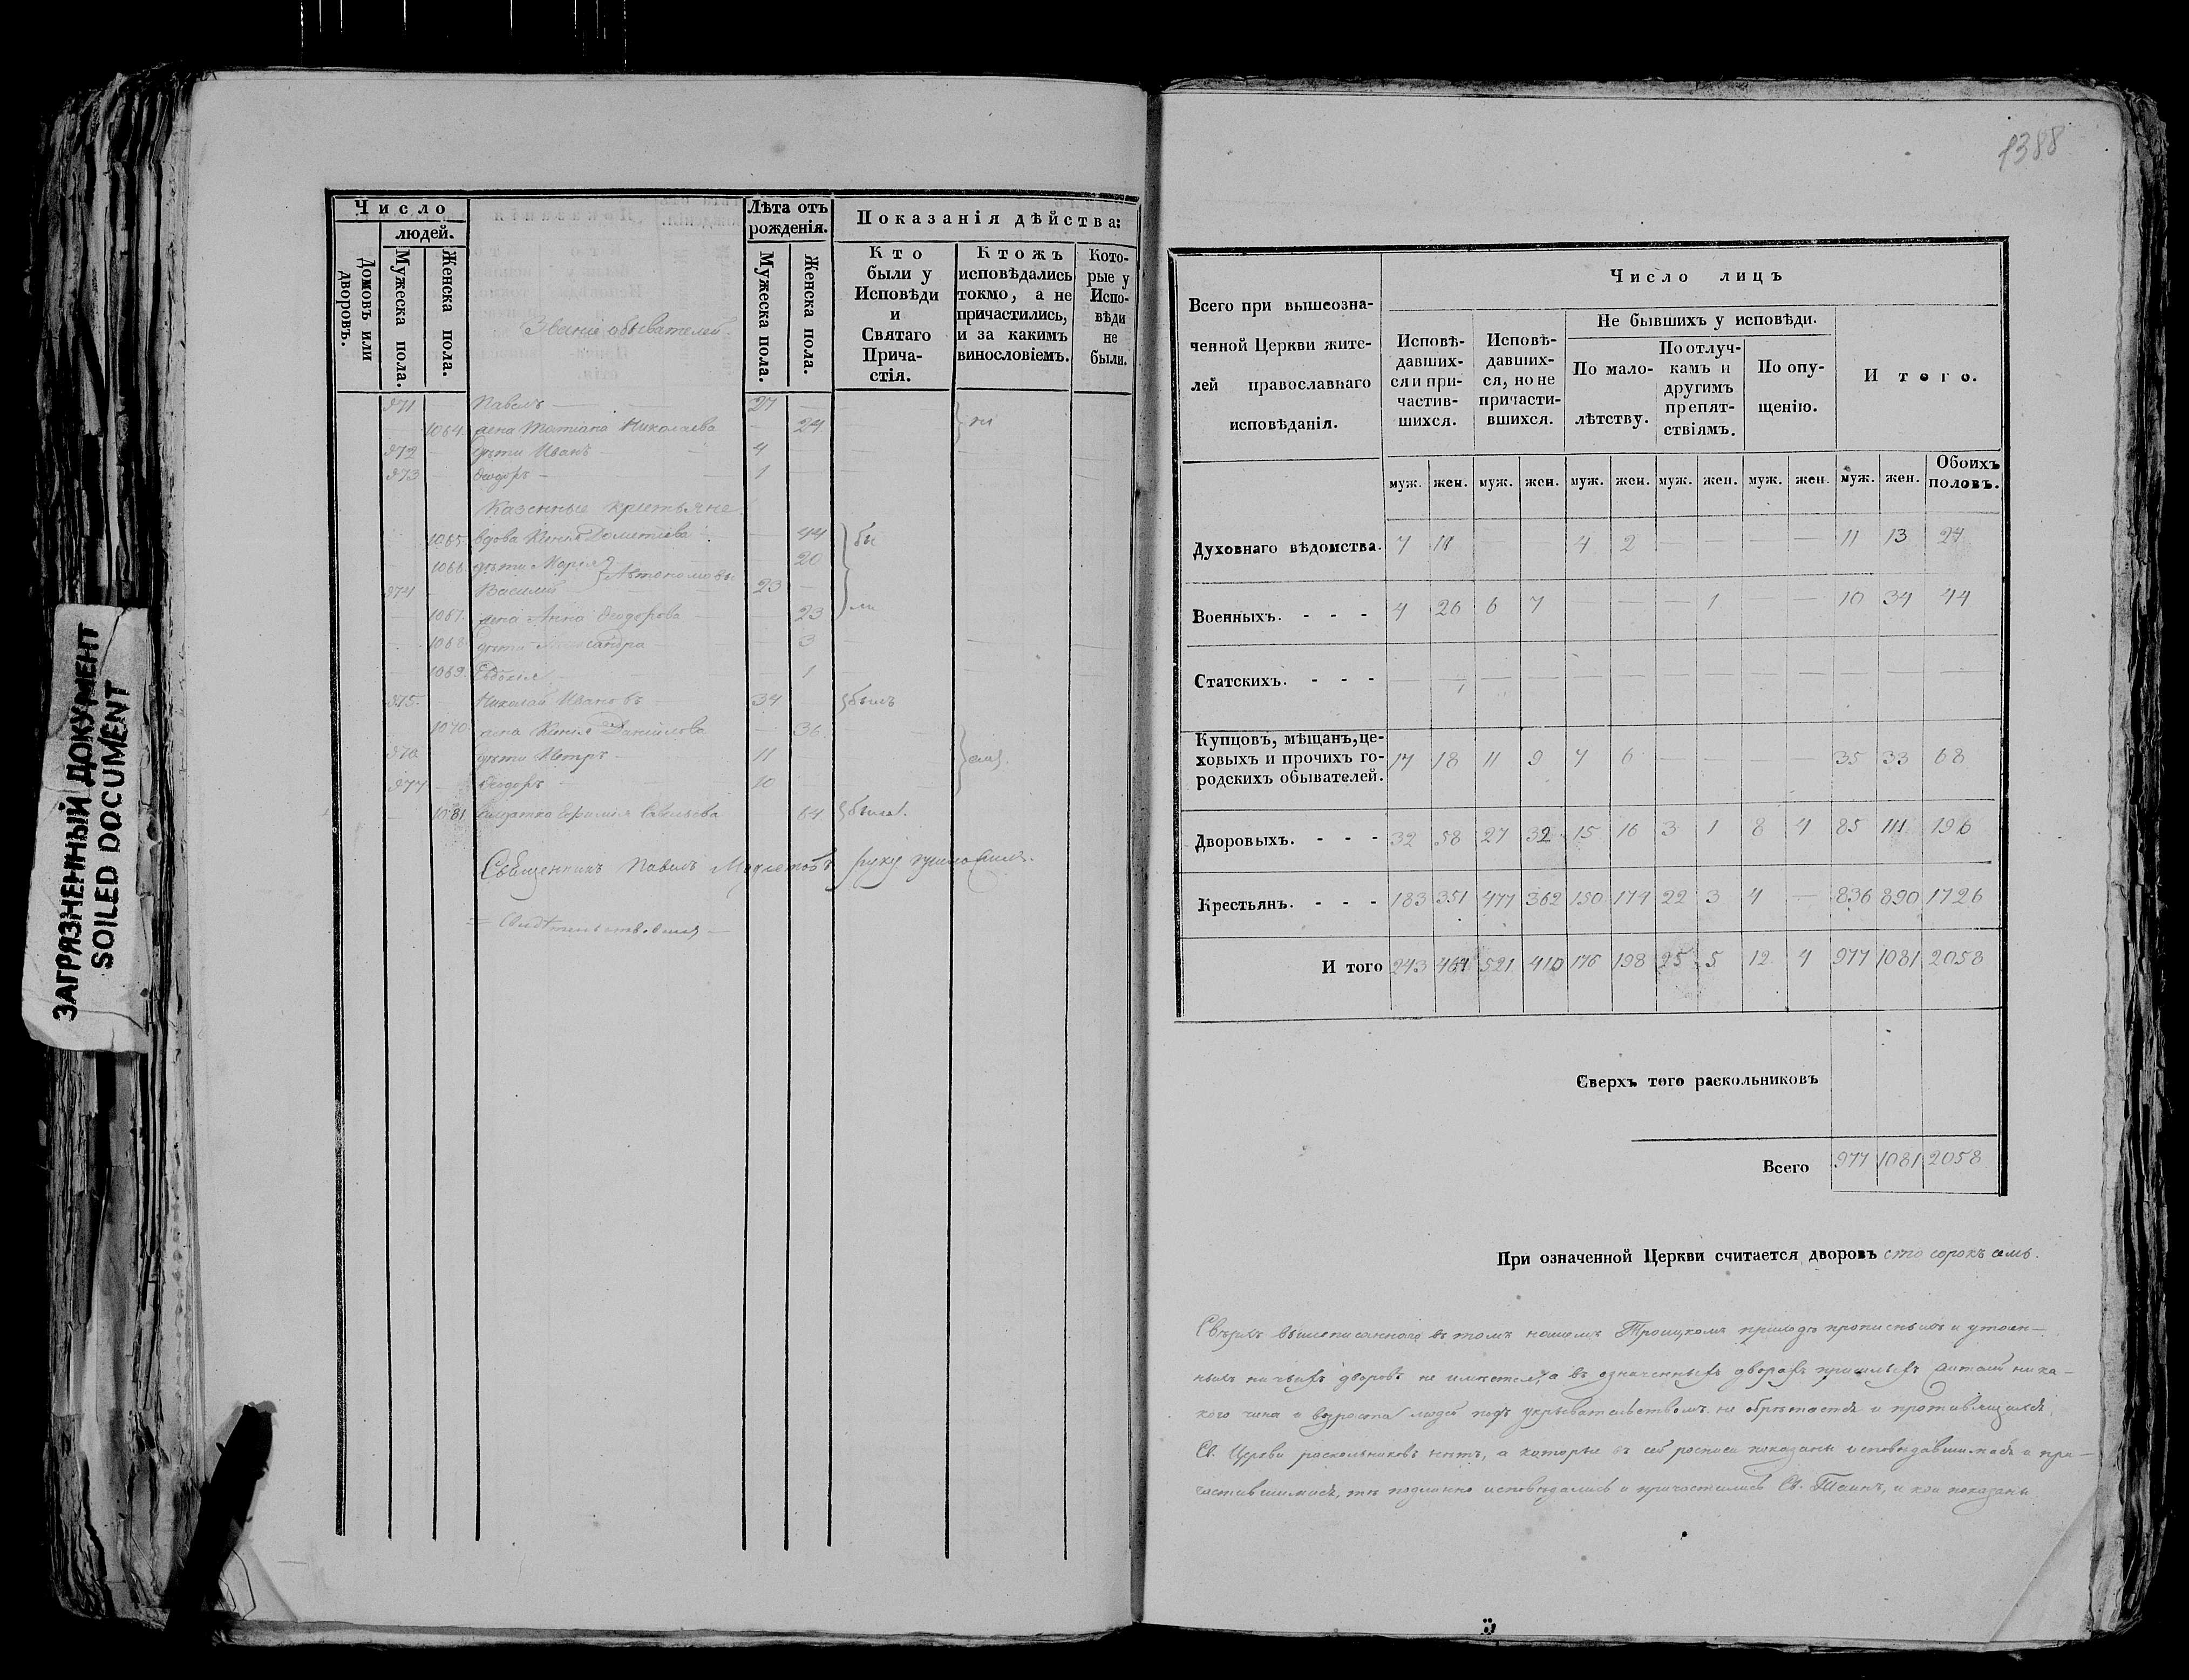 ЗАГРЯЗНЕННЫЙ ДОКУМЕНТ
SOILED DOCUMENT
Число
людей.
Домовъ или дворовъ.
Мужеска пола.
Женска пола.
Званіе обывателей.
Лѣта отъ рожденія.
Мужеска пола.
Женска пола.
Показанія дѣйства:
Кто были у Исповѣди и Святаго Причастія.
Ктожъ исповѣдались токмо, а не причастились, и за какимъ винословіемъ.
Которые у Исповѣди не были.
971 Павелъ — 27
1064. жена Татіана Николаева 24
972 дѣти Иванъ 4
973 Ѳеодоръ 1
Казенные крестьяне
1065. вдова Ксенія Дометіева 44 бы
1066 дѣти Марія 20
974 Василій Автономовы 23
1067. жена Анна Ѳеодорова 23 ли
1068 дѣти Александра 3
1069. Евдокія 1
975. Николай Ивановъ 34 былъ
1070 жена Ксенія Даніилова 36
976 дѣти Петръ 11
977 Ѳеодоръ 10
1081 солдатка Евфимія Савельева 64 была.
Священникъ Павелъ руку приложилъ.
1388
Всего при вышеозначенной Церкви жителей православнаго исповѣданія.
Число лицъ
Исповѣдавшихся и причастившихся.
Исповѣдавшихся, но не причастившихся.
Не бывшихъ у исповѣди.
По малолѣтству.
По отлучкамъ и другимъ препятствіямъ.
По опущенію.
Итого.
муж. жен. муж. жен. муж. жен. муж. жен. муж. жен. муж. жен. Обоихъ половъ.
Духовнаго вѣдомства. 7 11 — — 4 2 — — — — 11 13 24
Военныхъ. - - - 4 26 6 7 — — — 1 — — 10 34 44
Статскихъ. - - - — — — — — — — — — — — — —
Купцовъ, мѣщанъ, цеховыхъ и прочихъ городскихъ обывателей. 17 18 11 9 7 6 — — — — 35 33 68
Дворовыхъ. - - - 32 58 27 32 15 16 3 1 8 4 85 111 196
Крестьянъ. - - - 183 351 477 362 150 174 22 3 4 — 836 890 1726
Итого 243 464 521 410 176 198 25 5 12 4 977 1081 2058
Сверхъ того раскольниковъ
Всего 977 1081 2058
При означенной Церкви считается дворовъ сто сорокъ семь.
Сверхъ вышеписаннаго въ томъ нашемъ Троицкомъ приходѣ прописныхъ и утаен-
ныхъ ничьихъ дворовъ не имѣется, а въ означенныхъ дворахъ пришлыхъ ника-
кого чина и возраста людей подъ укрывательствомъ не обрѣтается и противящихся
Св. Церкви раскольниковъ нѣтъ, а которые въ сей росписи показаны исповѣдавшимися и при-
частившимися, тѣ подлинно исповѣдались и причастились Св. Таинъ, и кои показаны